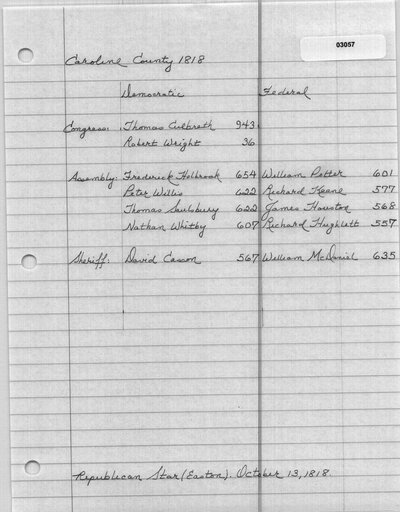 03057
Caroline County 1818
Democratic Federal
Congress: Thomas Culbreth 943
Robert Wright 36
Assembly: Frederick Holbrook 654 William Potter 601
Peter Willis 622 Richard Keene 577
Thomas Saulsbury 622 James Houston 568
Nathan Whitby 607 Richard Hughlett 557
Sheriff: David Casson 567 William McDaniel 635
Republican Star (Easton). October 13, 1818.